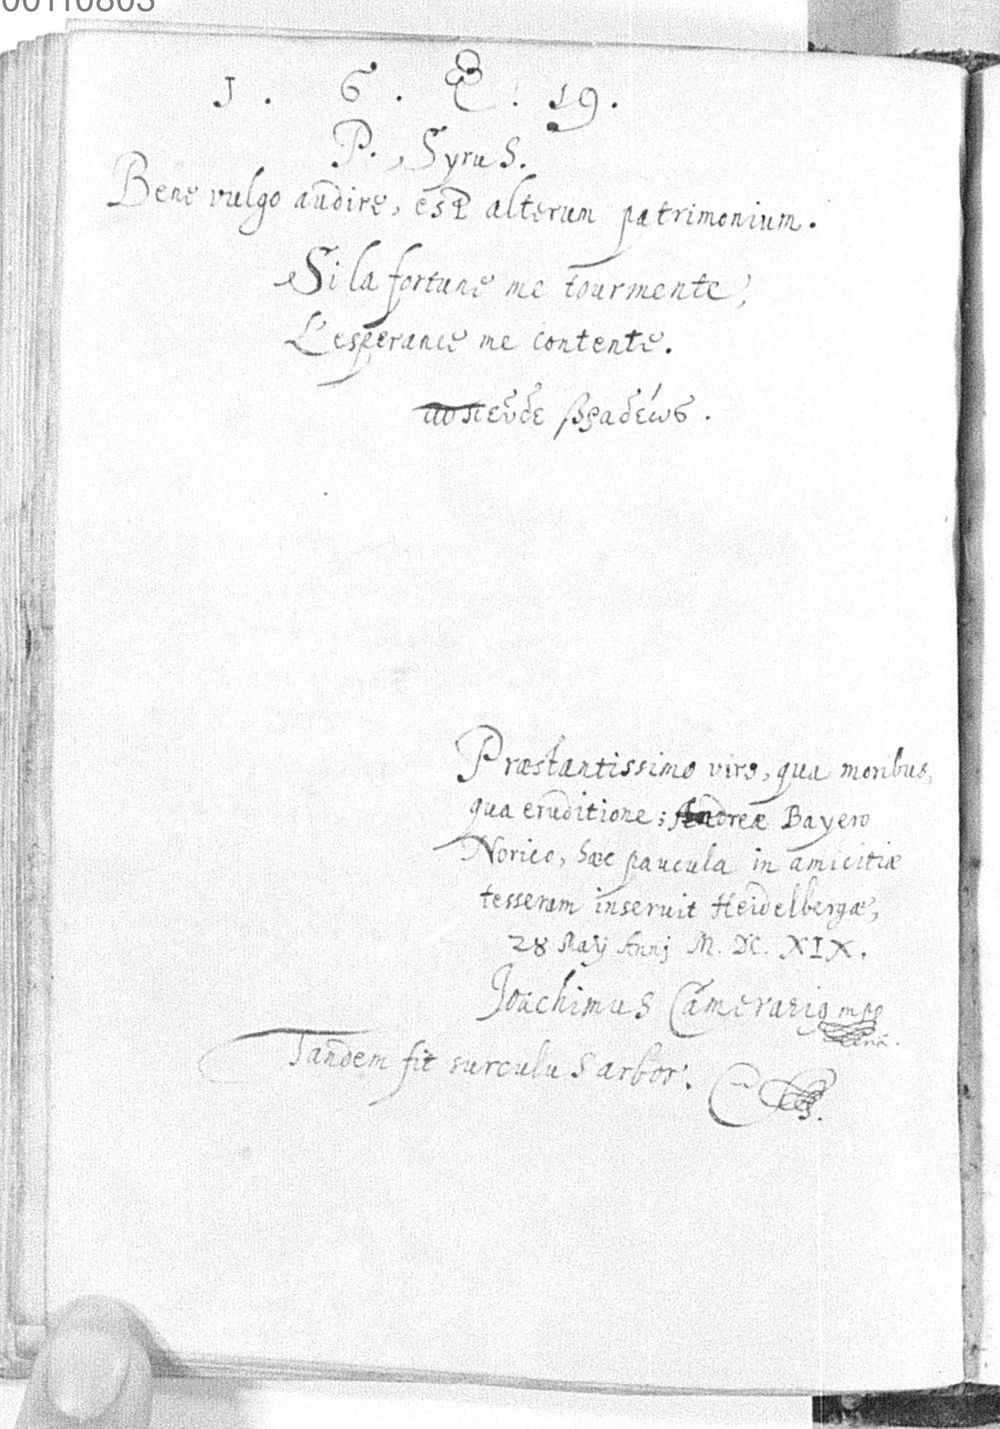 00110803
1. 6. & : 19.
P. Syrus.
Bene vulgo audire, est alterum patrimonium.
Si la fortune me tourmente,
L'esperance me contente.
σπεῦδε βραδέως.
Præstantissimo viro, qua moribus,
qua eruditione; Andreæ Bayero
Norico, hæc paucula in amicitiæ
tesseram inseruit Heidelbergæ,
28 Maij Anni M. DC. XIX.
Joachimus Camerarius mpp
Tandem fit surculus arbor.